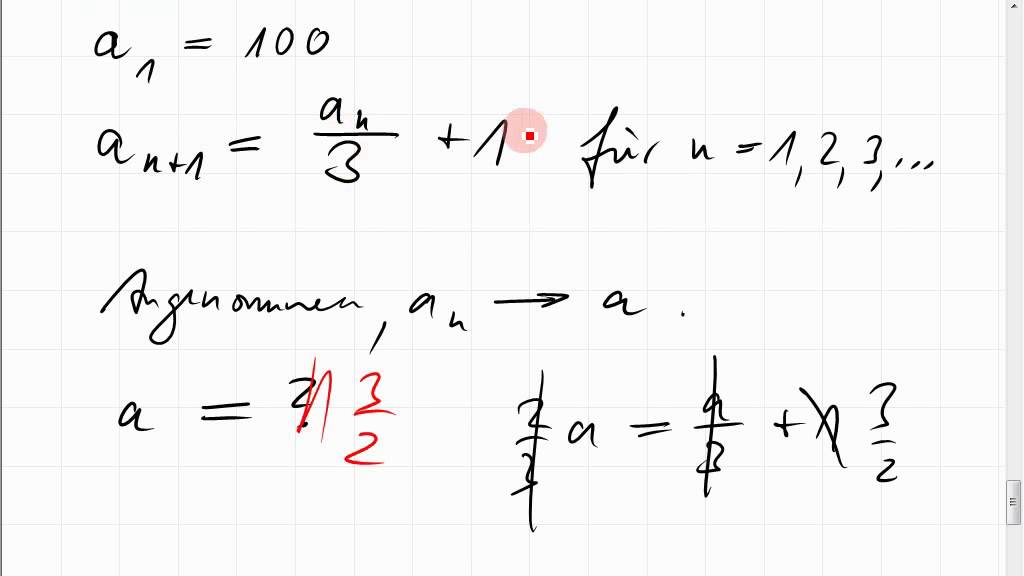 a₁ = 100
aₙ₊₁ = aₙ/3 + 1 für n = 1, 2, 3, ...
Angenommen, aₙ → a.
a = 3/2
2/3 a = a/3 + 1 3/2